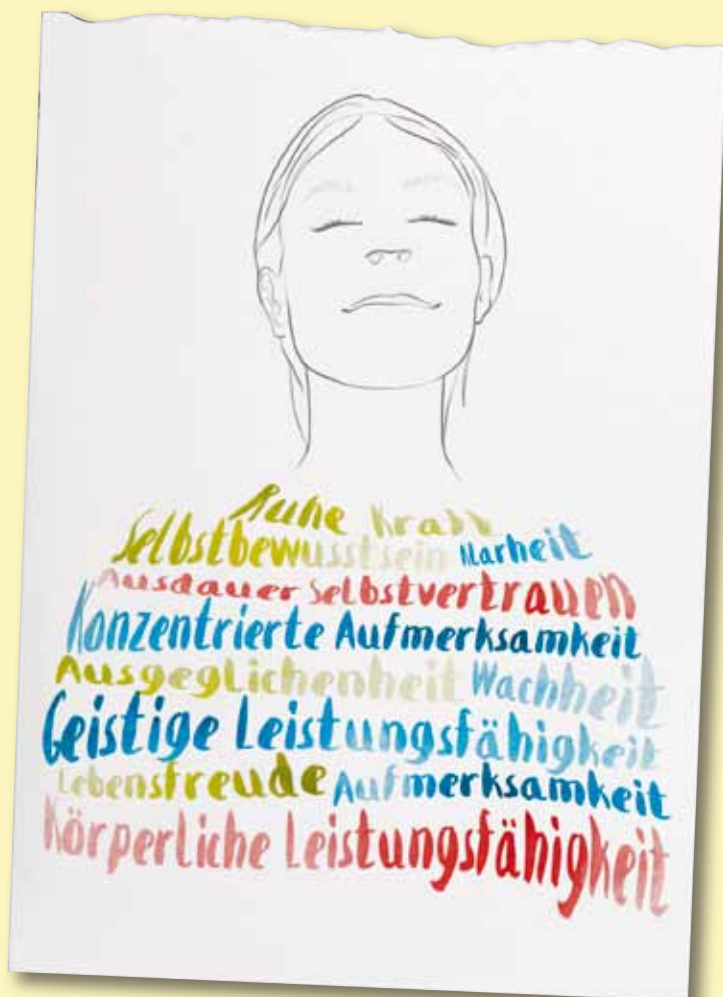 Ruhe Kraft
Selbstbewusstsein Klarheit
Ausdauer Selbstvertrauen
Konzentrierte Aufmerksamkeit
Ausgeglichenheit Wachheit
Geistige Leistungsfähigkeit
Lebensfreude Aufmerksamkeit
Körperliche Leistungsfähigkeit